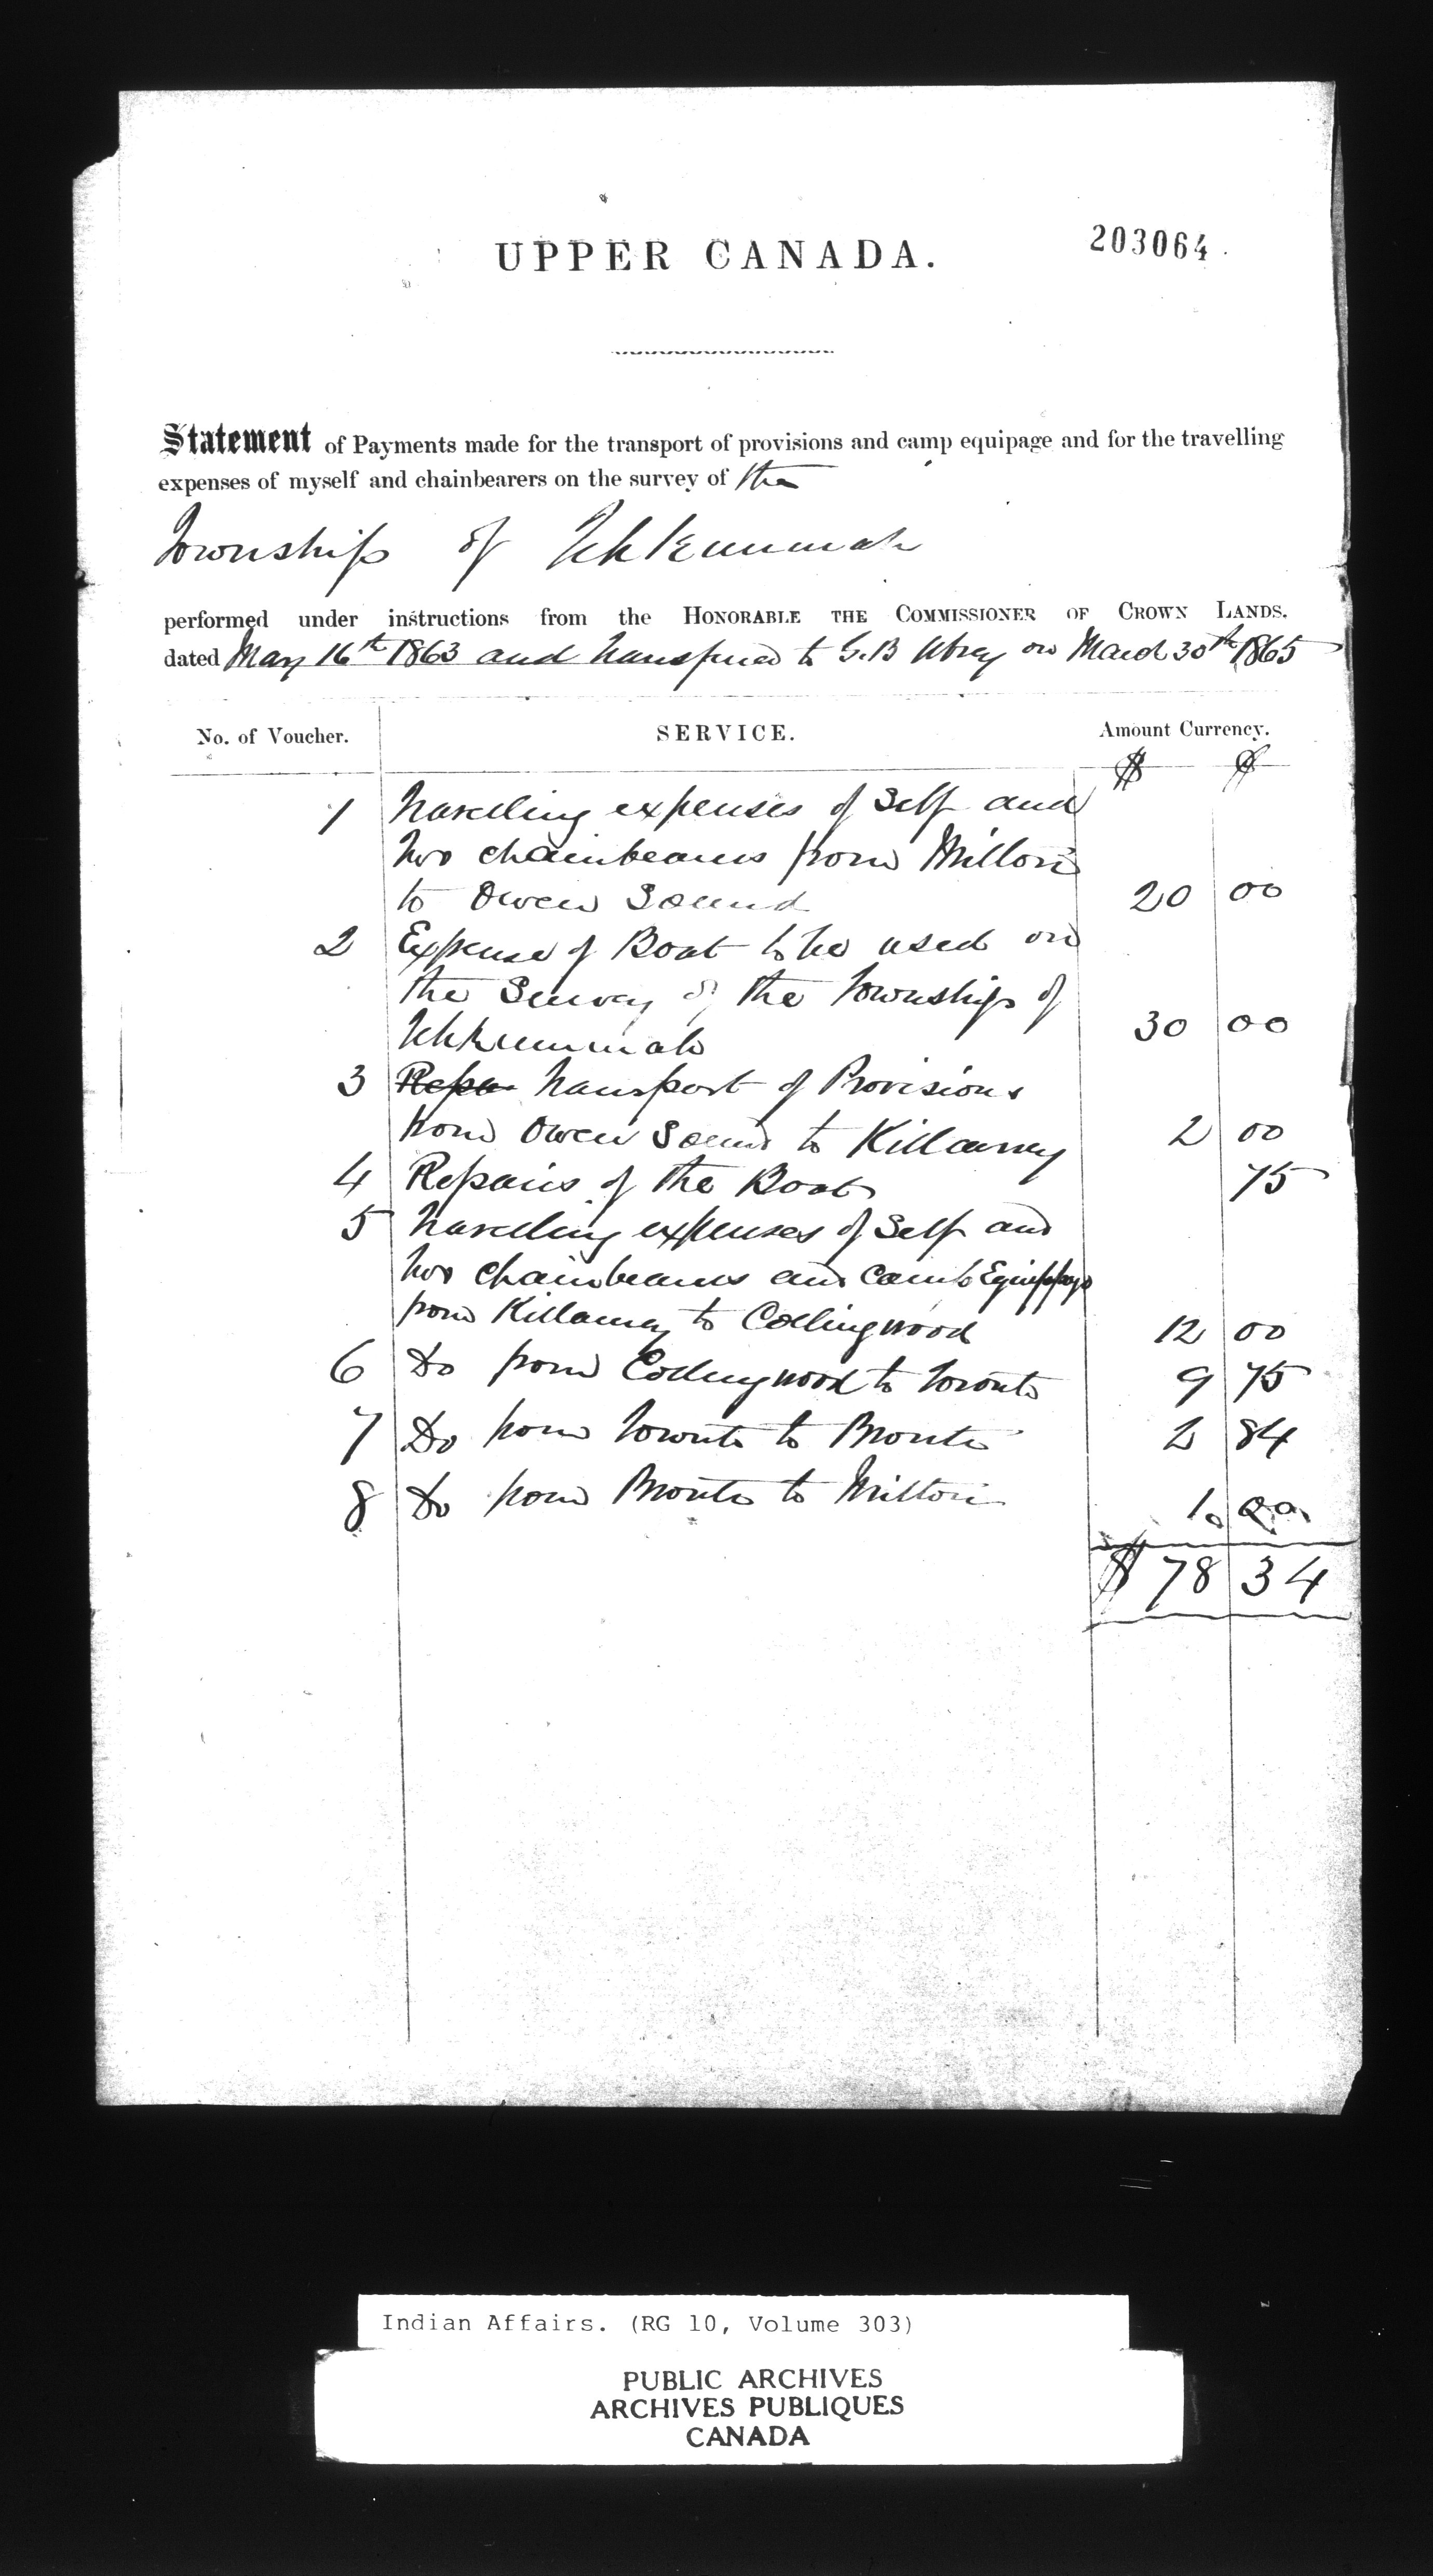 UPPER CANADA.
203064
Statement of Payments made for the transport of provisions and camp equipage and for the travelling
expenses of myself and chainbearers on the survey of the
Township of Tehkummah
performed under instructions from the HONORABLE THE COMMISSIONER OF CROWN LANDS.
dated May 16th 1863 and transferred to G.B Abrey on March 30th 1865
No. of Voucher. SERVICE. Amount Currency.
$ ¢
1 Travelling expenses of Self and
two chainbearers from Milton
to Owen Sound 20 00
2 Expense of Boat to be used on
the Survey of the Township of
Tehkummah 30 00
3 Repa Transport of Provisions
from Owen Sound to Killarney 2 00
4 Repairs of the Boat 75
5 Travelling expenses of Self and
two chainbearers and Camp Equippage
from Killarney to Collingwood 12 00
6 Do from Collingwood to Toronto 9 75
7 Do from Toronto to Bronte 2 84
8 Do from Bronte to Milton 1.00
$ 78 34
Indian Affairs. (RG 10, Volume 303)
PUBLIC ARCHIVES
ARCHIVES PUBLIQUES
CANADA